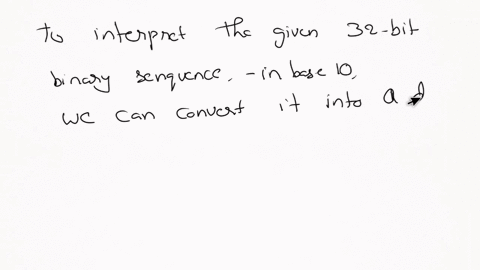 To interpret the given 32-bit
binary senquence, - in base 10,
we can convert it into a d